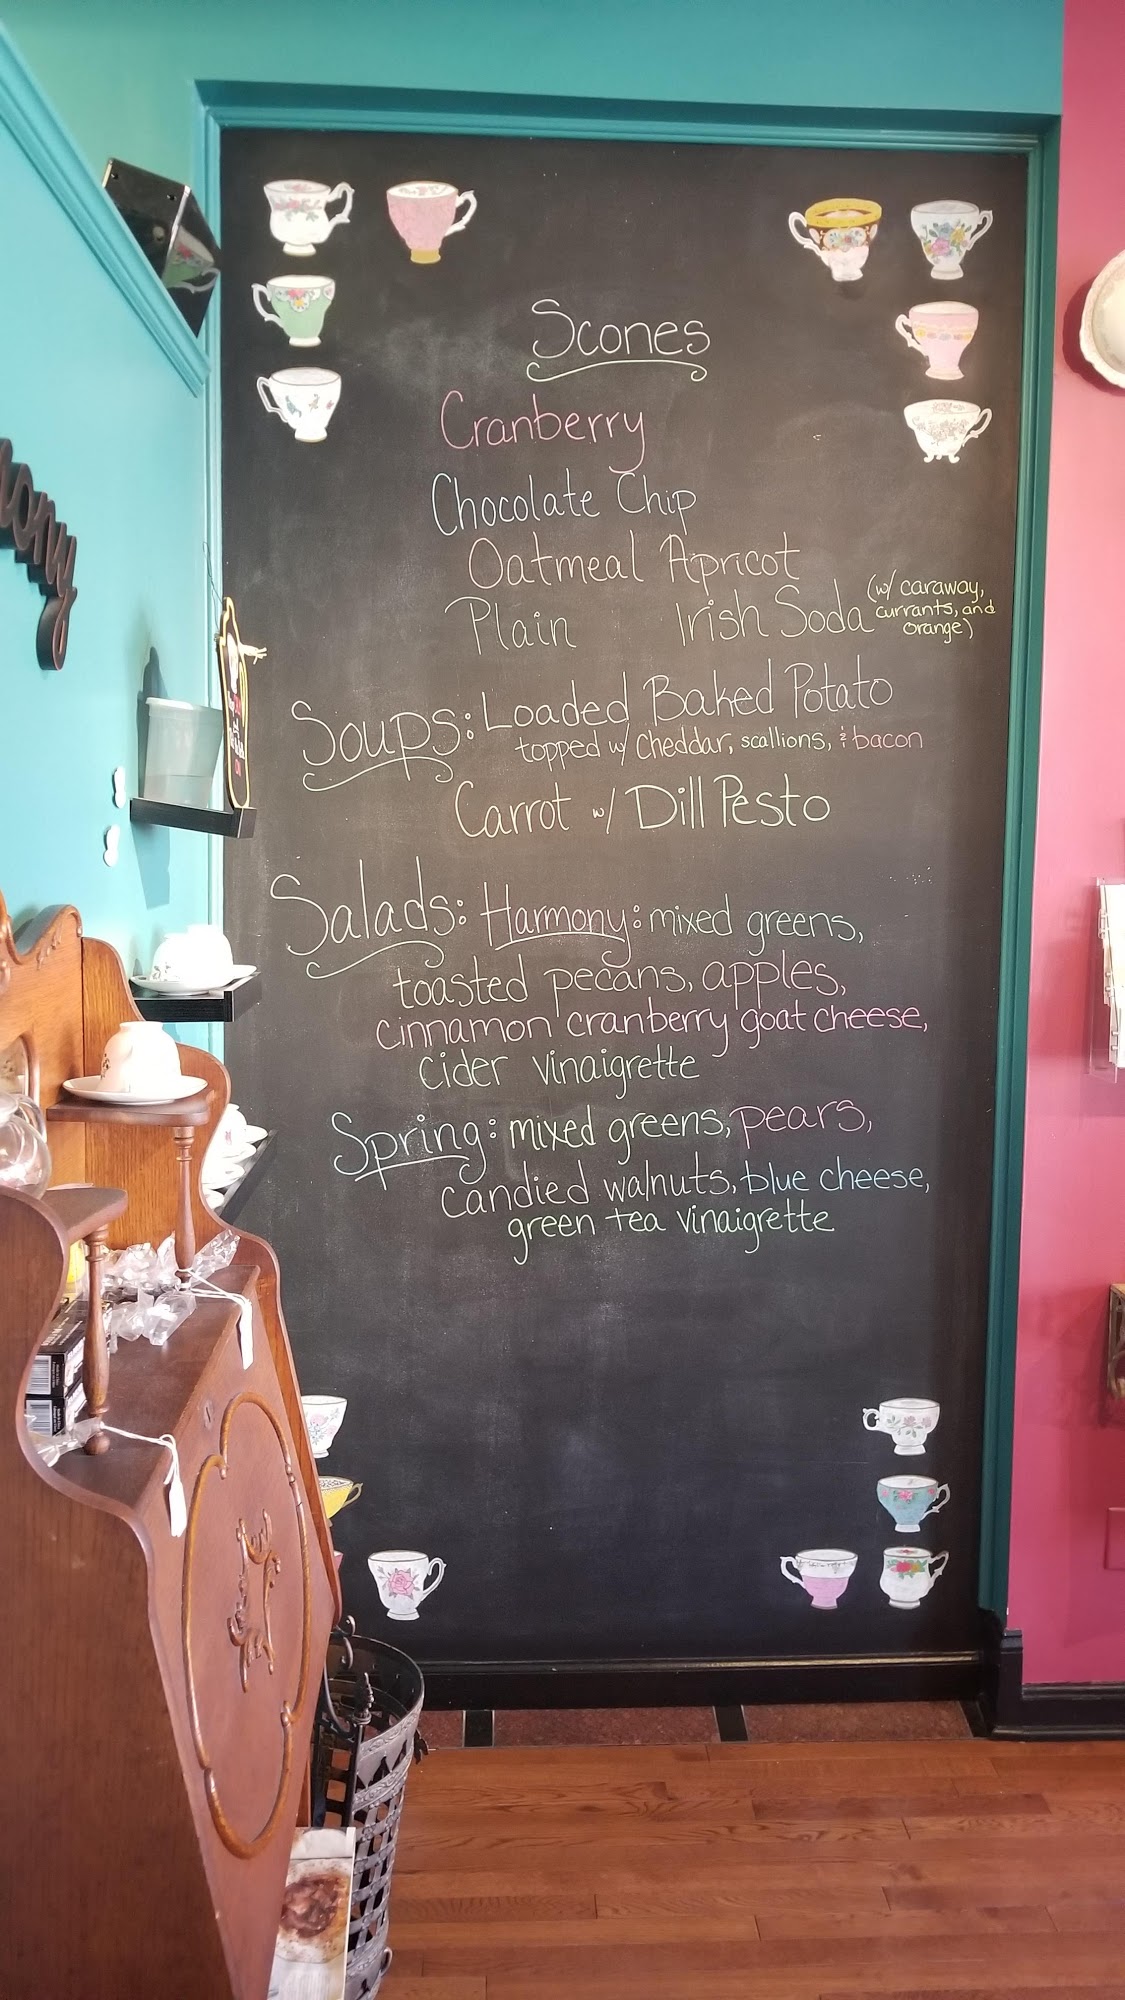 Scones
Cranberry
Chocolate Chip
Oatmeal Apricot
Plain Irish Soda (w/ caraway, currants, and orange)
Soups: Loaded Baked Potato
topped w/ cheddar, scallions, & bacon
Carrot w/ Dill Pesto
Salads: Harmony: mixed greens,
toasted pecans, apples,
cinnamon cranberry goat cheese,
cider vinaigrette
Spring: mixed greens, pears,
candied walnuts, blue cheese,
green tea vinaigrette